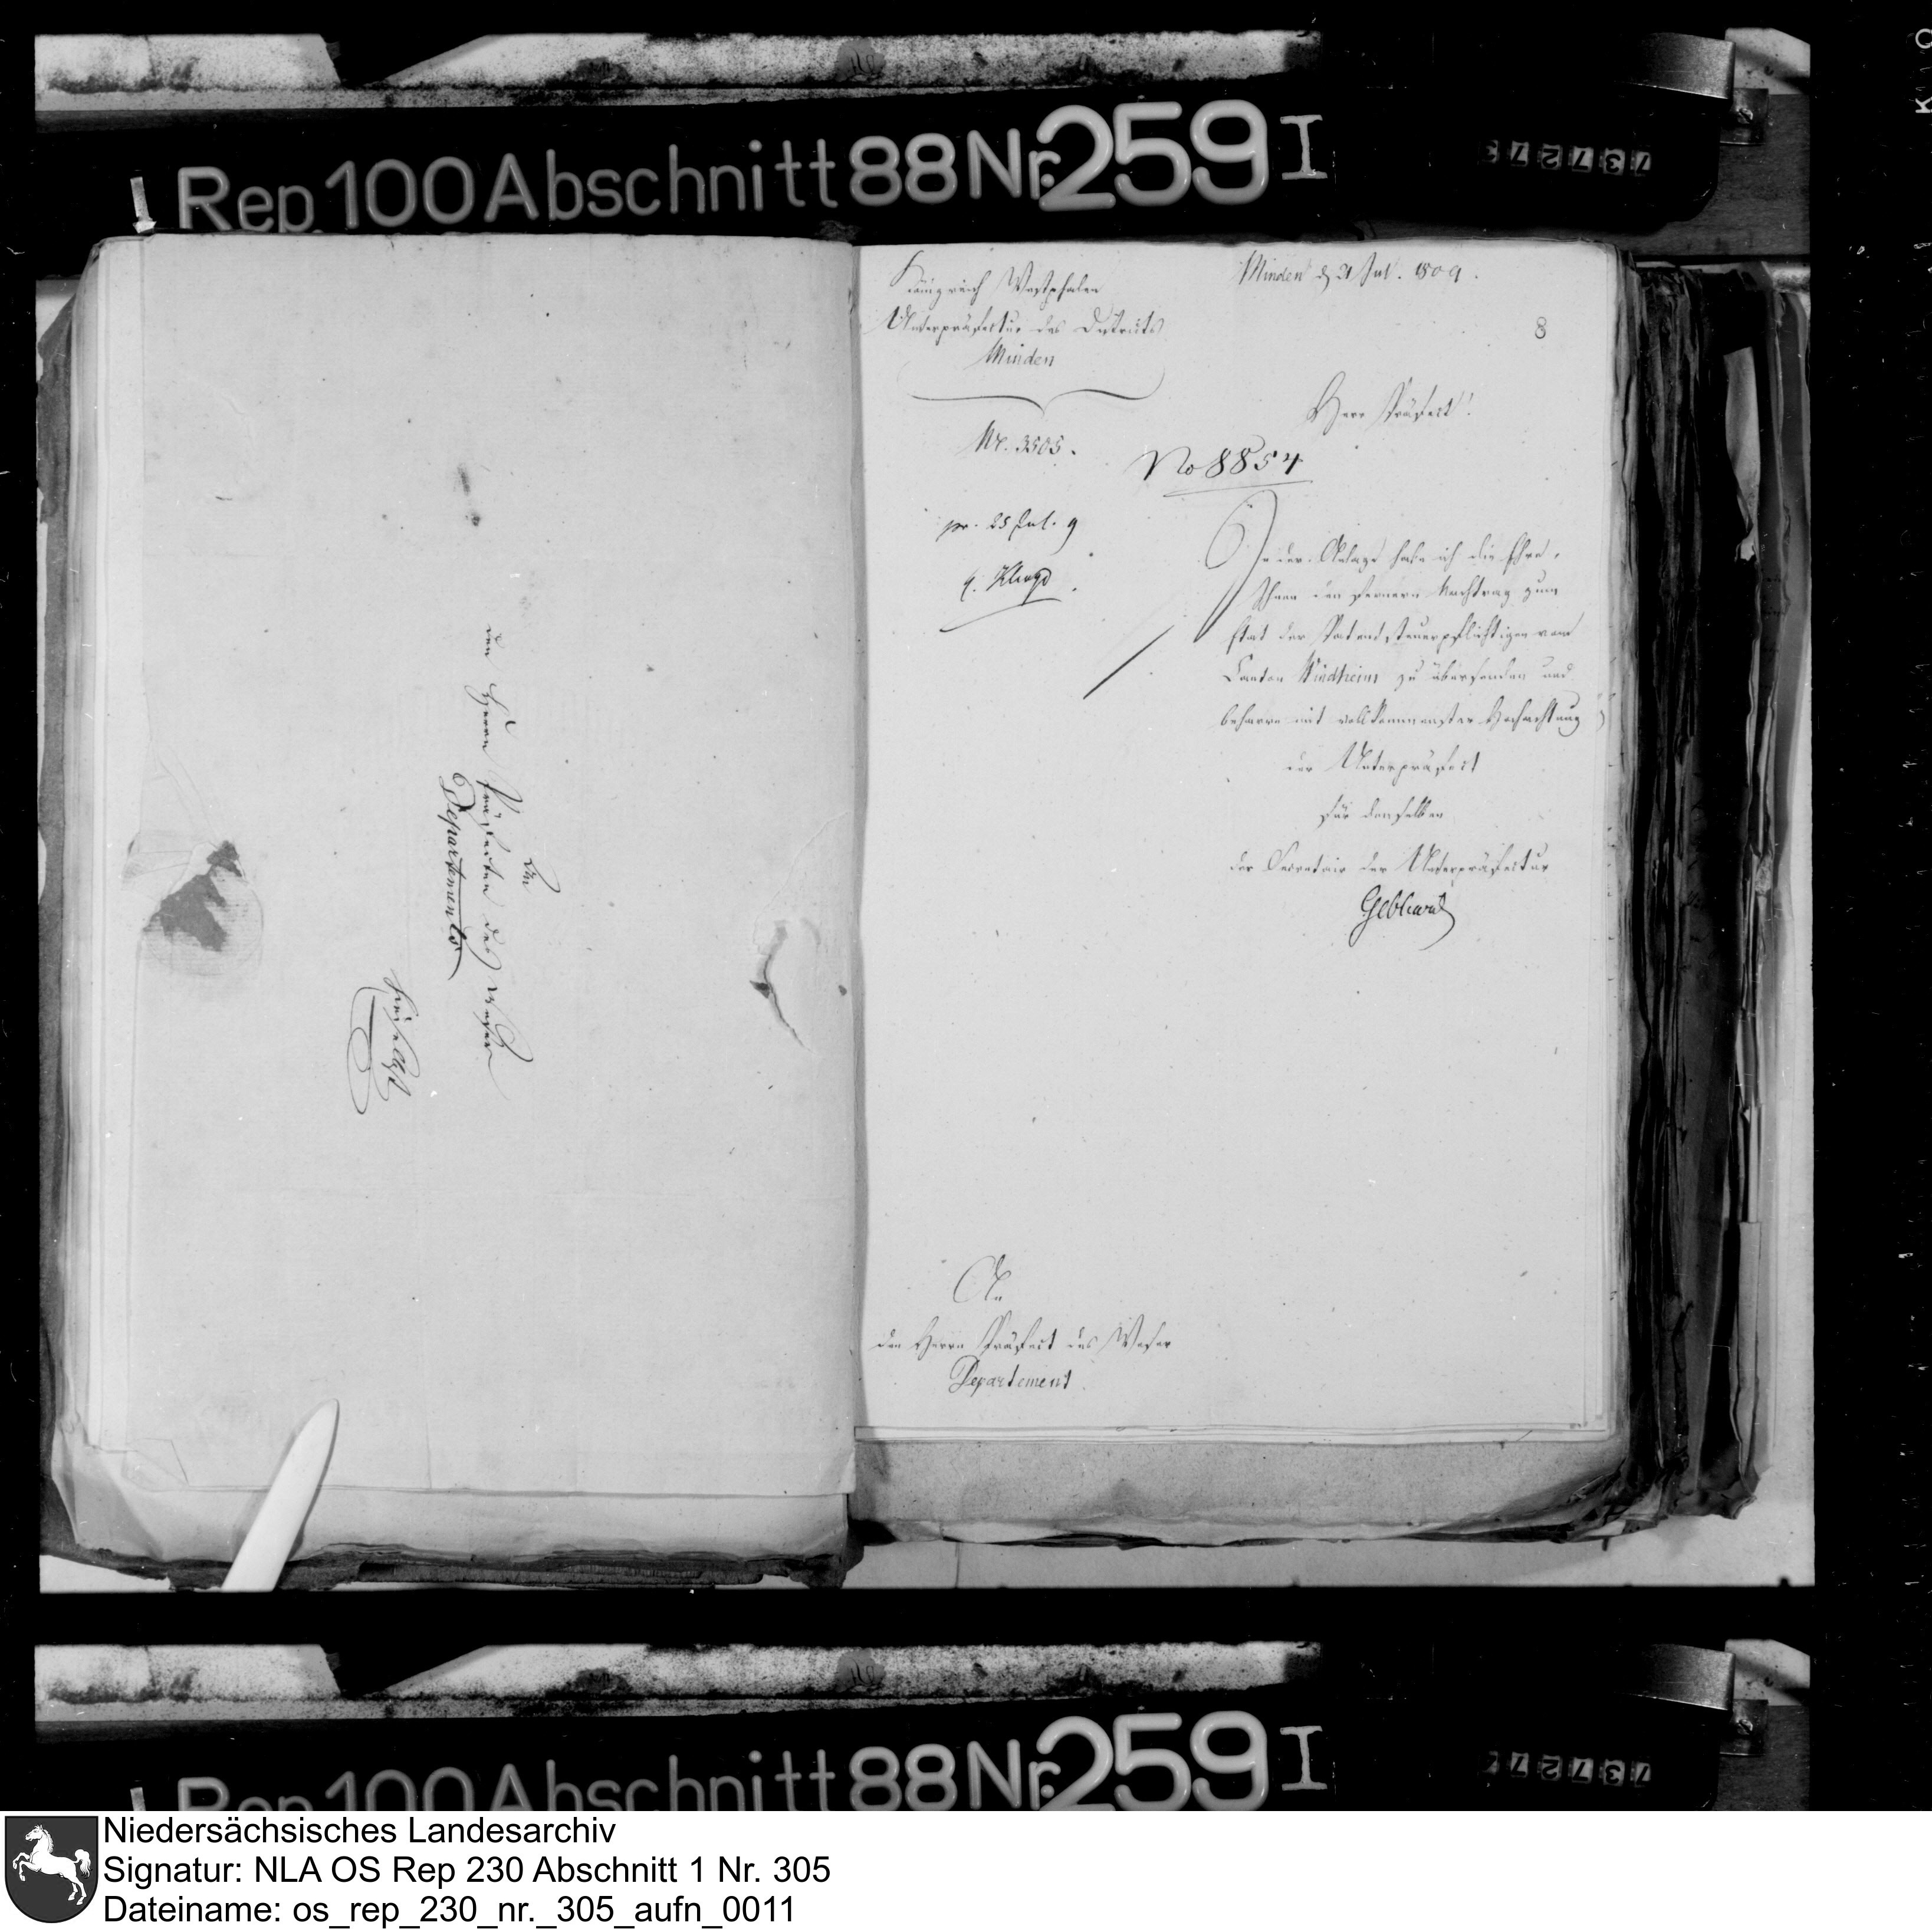 Rep. 100 Abschnitt 88 Nr. 259 I
737273
den Herrn Präfecten des Weser
Departements
hieselbst
Königreich Westphalen
Unterpräfectur des Districts
Minden
Nr. 3505.
pr. 25 Jul. 9
Minden d 21 Jul. 1809.
8
Herr Präfect!
No 8854
In der Anlage habe ich die Ehre,
Ihnen den fernern Nachtrag zum
Etat der Patentsteuerpflichtigen vom
Canton Windheim zu übersenden und
beharre mit vollkommenster Hochachtung
der Unterpräfect
für denselben
der Secretair der Unterpräfectur
Gebhard
An
den Herrn Präfect des Weser
Departement.
Rep. 100 Abschnitt 88 Nr. 259 I
Niedersächsisches Landesarchiv
Signatur: NLA OS Rep 230 Abschnitt 1 Nr. 305
Dateiname: os_rep_230_nr._305_aufn_0011